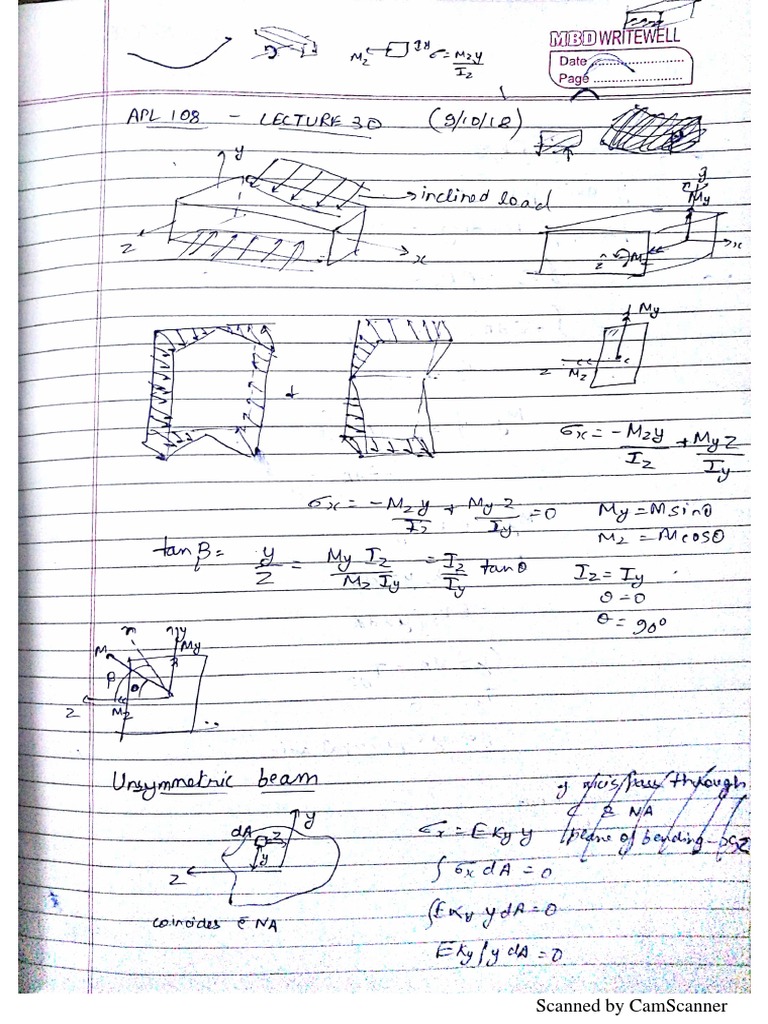 MBD WRITEWELL
Date
Page
Mz y σ = Mzy/Iz
APL 108 - LECTURE 30 (9/10/18)
y
inclined load
z
x
y
My
x
z M
My
z
Mz
+
σx = -Mzy/Iz + Myz/Iy
σx = -Mzy/Iz + Myz/Iy = 0 My = Msinθ
Mz = Mcosθ
tanβ = y/z = MyIz/MzIy = Iz/Iy tanθ Iz = Iy
θ = 0
θ = 90°
n y
M My
β θ
z Mz
Unsymmetric beam
y axis pass through
C c̄ NA
plane of bending → xz
dA y
z
y
z
σx = E Ky y
∫σx dA = 0
coincides c̄ NA
∫E Ky y dA = 0
E Ky ∫y dA = 0
Scanned by CamScanner